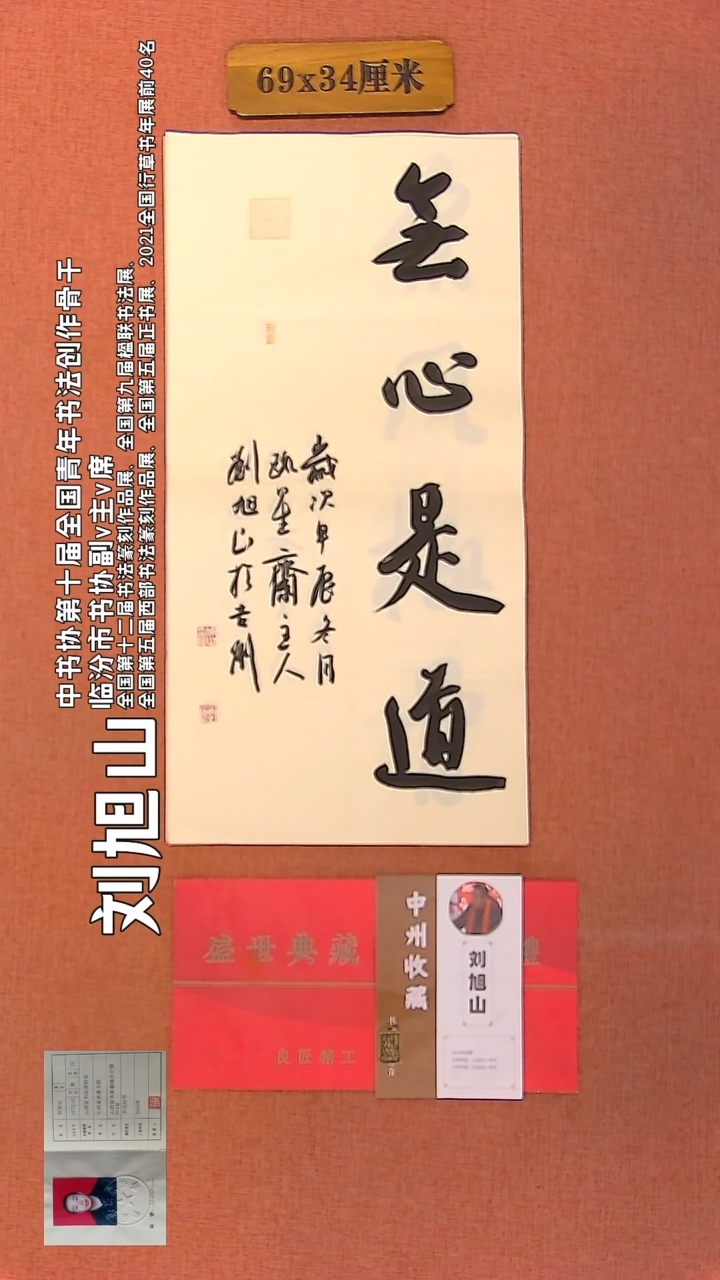 69x34厘米
無心是道
歲次甲辰冬月
主人
劉旭山於吉州
刘旭山
中书协第十届全国青年书法创作骨干
临汾市书协副v主v席
全国第十二届书法篆刻作品展、全国第九届楹联书法展、
全国第五届西部书法篆刻作品展、全国第五届正书展、2021全国行草书年展前40名
盛世典藏
良匠精工
中州收藏
刘旭山